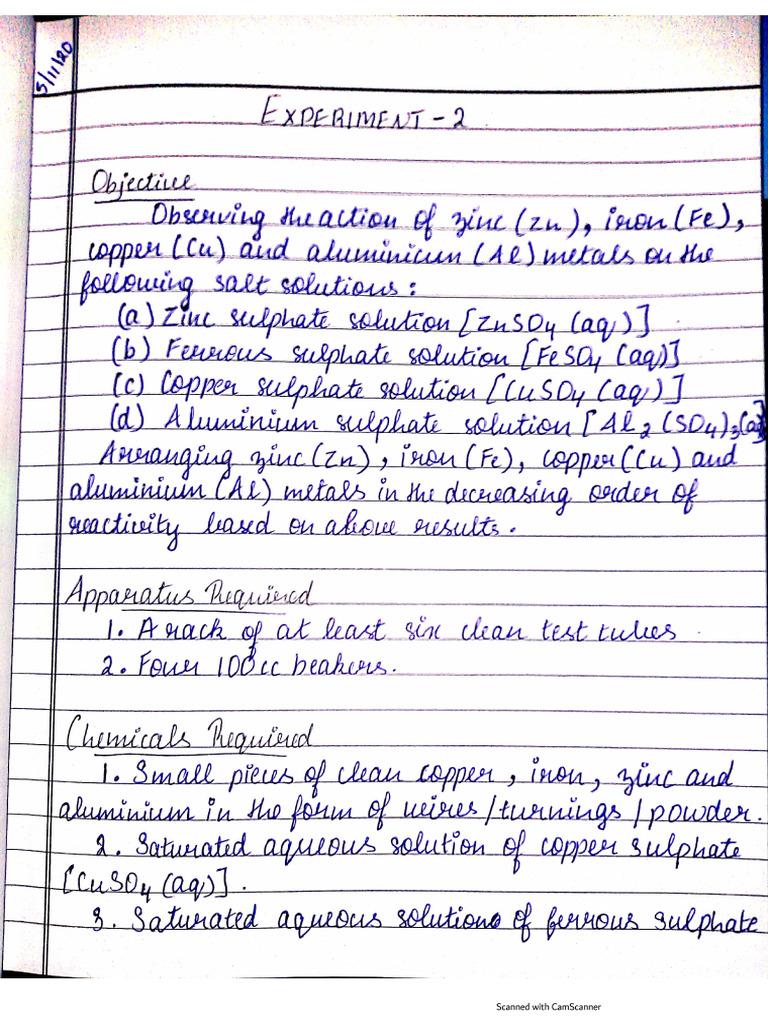 5/11/20
EXPERIMENT-2
Objective
Observing the action of zinc (Zn), iron (Fe),
copper (Cu) and aluminium (Al) metals on the
following salt solutions:
(a) Zinc sulphate solution [ZnSO4 (aq)]
(b) Ferrous sulphate solution [FeSO4 (aq)]
(c) Copper sulphate solution [CuSO4 (aq)]
(d) Aluminium sulphate solution [Al2 (SO4)3(aq)]
Arranging zinc (Zn), iron (Fe), copper (Cu) and
aluminium (Al) metals in the decreasing order of
reactivity based on above results.
Apparatus Required
1. A rack of at least six clean test tubes.
2. Four 100cc beakers.
Chemicals Required
1. Small pieces of clean copper, iron, zinc and
aluminium in the form of wires/turnings/powder.
2. Saturated aqueous solution of copper sulphate
[CuSO4 (aq)].
3. Saturated aqueous solution of ferrous sulphate
Scanned with CamScanner